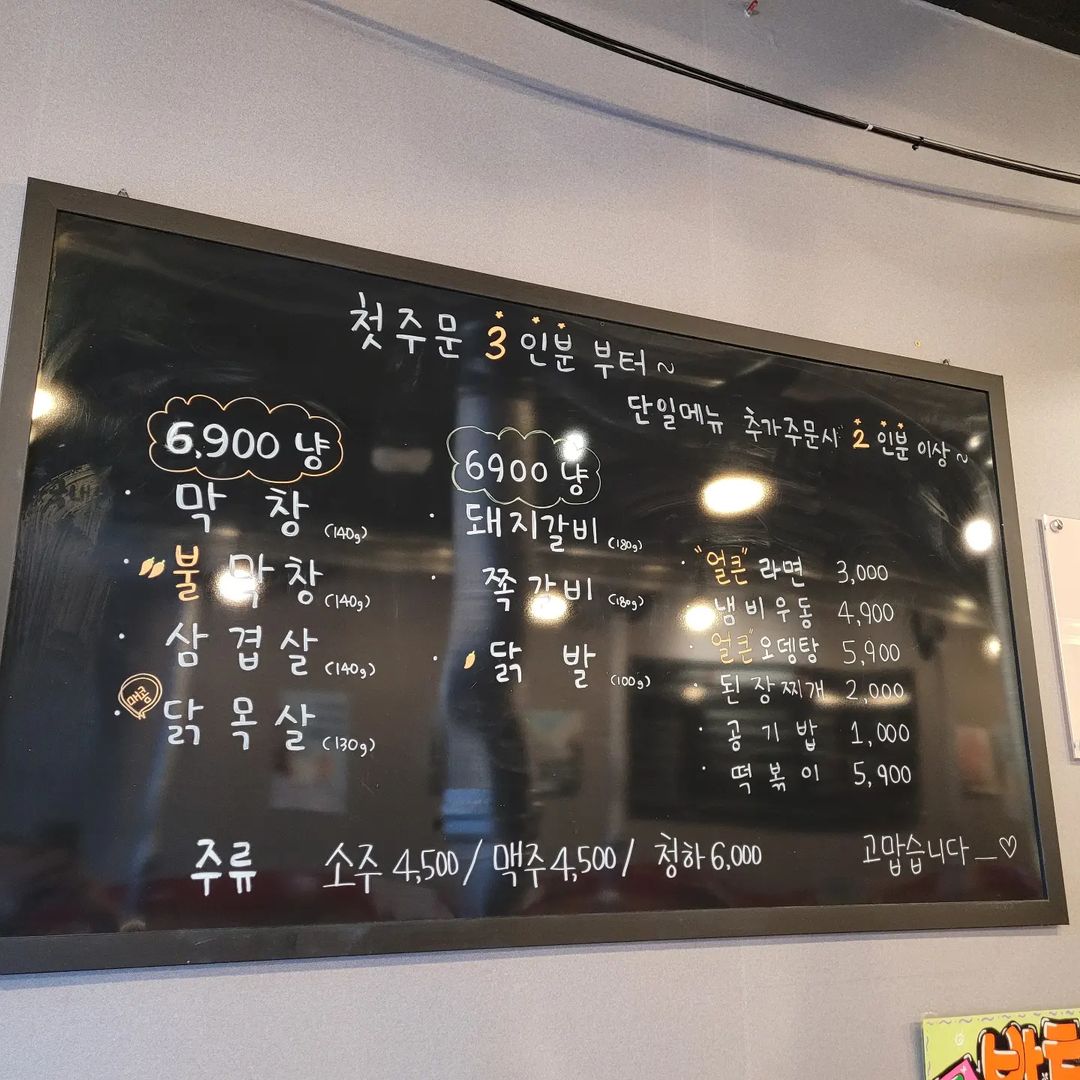 첫주문 3인분 부터~
단일메뉴 추가주문시 2인분 이상~
6,900 냥
막창 (140g)
불막창 (140g)
삼겹살 (140g)
매콤
닭목살 (130g)
6900 냥
돼지갈비 (180g)
쪽갈비 (180g)
닭발 (100g)
"얼큰" 라면 3,000
냄비우동 4,900
"얼큰" 오뎅탕 5,900
된장찌개 2,000
공기밥 1,000
떡볶이 5,900
주류 소주 4,500/ 맥주 4,500/ 청하 6,000
고맙습니다_♡